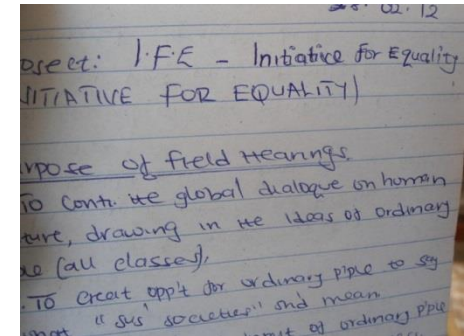 02. 12
I.F.E - Initiatice for Equality
ITIATIVE FOR EQUALITY)
rpose of field Hearings.
To conti. the global dialogue on human
ture, drawing in the ideas of ordinary
(all classes).
. To creat opp't for ordinary p'ple to say
"sus' societies" and mean
of ordinary p'ple